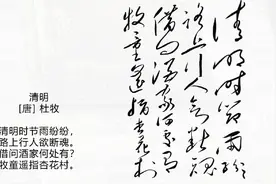 清明
[唐] 杜牧
清明时节雨纷纷，
路上行人欲断魂。
借问酒家何处有？
牧童遥指杏花村。
清明时节雨纷
路上行人欲断魂
借问酒家何处有
牧童遥指杏花村